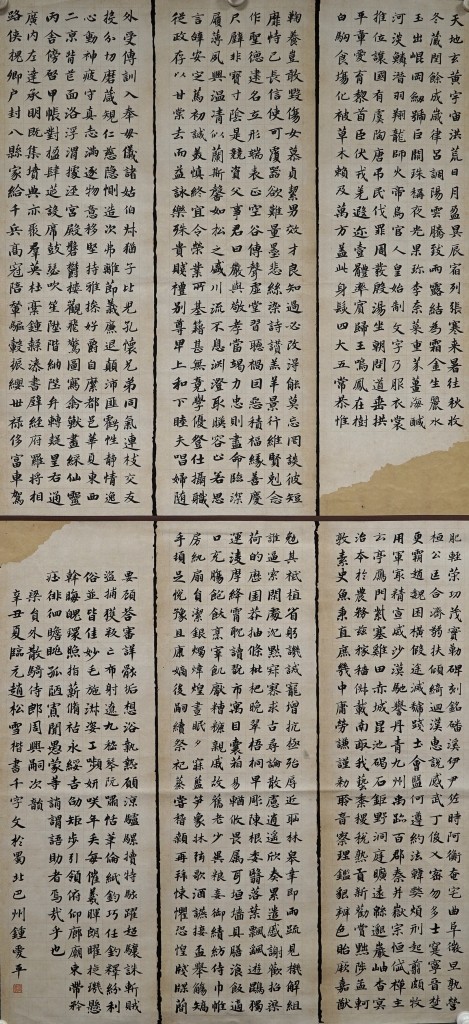 天地玄黃宇宙洪荒日月盈昃辰宿列張寒來暑往秋收
冬藏閏餘成歲律呂調陽雲騰致雨露結為霜金生麗水
玉出崐岡劍號巨闕珠稱夜光果珍李柰菜重芥薑海鹹
河淡鱗潛羽翔龍師火帝鳥官人皇始制文字乃服衣裳
推位讓國有虞陶唐弔民伐罪周發殷湯坐朝問道垂拱
平章愛育黎首臣伏戎羌遐邇壹體率賓歸王鳴鳳在樹
白駒食場化被草木賴及萬方蓋此身髮四大五常恭惟
鞠養豈敢毀傷女慕貞絜男效才良知過必改得能莫忘罔談彼短
靡恃己長信使可覆器欲難量墨悲絲染詩讚羔羊景行維賢剋念
作聖德建名立形端表正空谷傳聲虛堂習聽禍因惡積福緣善慶
尺璧非寶寸陰是競資父事君曰嚴與敬孝當竭力忠則盡命臨深
履薄夙興溫凊似蘭斯馨如松之盛川流不息淵澄取映容止若思
言辭安定篤初誠美慎終宜令榮業所基籍甚無竟學優登仕攝職
從政存以甘棠去而益詠樂殊貴賤禮別尊卑上和下睦夫唱婦隨
外受傅訓入奉母儀諸姑伯叔猶子比兒孔懷兄弟同氣連枝交友
投分切磨箴規仁慈隱惻造次弗離節義廉退顛沛匪虧性靜情逸
心動神疲守真志滿逐物意移堅持雅操好爵自縻都邑華夏東西
二京背芒面洛浮渭據涇宮殿盤鬱樓觀飛驚圖寫禽獸畫綵仙靈
丙舍傍啓甲帳對楹肆筵設席鼓瑟吹笙陞階納陛弁轉疑星右通
廣內左達承明既集墳典亦聚羣英杜稾鍾隸漆書壁經府羅將相
路俠槐卿戶封八縣家給千兵高冠陪輦驅轂振纓世祿侈富車駕
肥輕策功茂實勒碑刻銘磻溪伊尹佐時阿衡奄宅曲阜微旦孰營
桓公匡合濟弱扶傾綺迴漢惠說感武丁俊乂密勿多士寔寧晉楚
更霸趙魏困橫假途滅虢踐土會盟何遵約法韓弊煩刑起翦頗牧
用軍最精宣威沙漠馳譽丹青九州禹跡百郡秦并嶽宗恒岱禪主
云亭鴈門紫塞雞田赤城昆池碣石鉅野洞庭曠遠緜邈巖岫杳冥
治本於農務茲稼穡俶載南畝我藝黍稷稅熟貢新勸賞黜陟孟軻
敦素史魚秉直庶幾中庸勞謙謹勑聆音察理鑑貌辨色貽厥嘉猷
勉其祗植省躬譏誡寵增抗極殆辱近恥林皋幸即兩疏見機解組
誰逼索居閑處沉默寂寥求古尋論散慮逍遙欣奏累遣慼謝歡招渠
荷的歷園莽抽條枇杷晚翠梧桐早彫陳根委翳落葉飄颻遊鵾獨
運凌摩絳霄耽讀翫市寓目囊箱易輶攸畏屬耳垣牆具膳湌飯適
口充腸飽飫烹宰飢厭糟糠親戚故舊老少異粮妾御績紡侍巾帷
房紈扇員潔銀燭煒煌晝眠夕寐藍笋象牀弦歌酒讌接盃舉觴矯
手頓足悅豫且康嫡後嗣續祭祀蒸嘗稽顙再拜悚懼恐惶牋牒簡
要顧答審詳骸垢想浴執熱願涼驢騾犢特駭躍超驤誅斬賊
盜捕獲叛亡布射遼丸嵇琴阮嘯恬筆倫紙鈞巧任釣釋紛利
俗並皆佳妙毛施淑姿工顰妍咲年矢每催羲暉朗曜琁璣懸
斡晦魄環照指薪脩祜永綏吉劭矩步引領俯仰廊廟束帶矜
莊徘徊瞻眺孤陋寡聞愚蒙等誚謂語助者焉哉乎也
梁員外散騎侍郎周興嗣次韻
辛丑夏臨元趙松雪楷書千字文於蜀北巴州鍾愛平